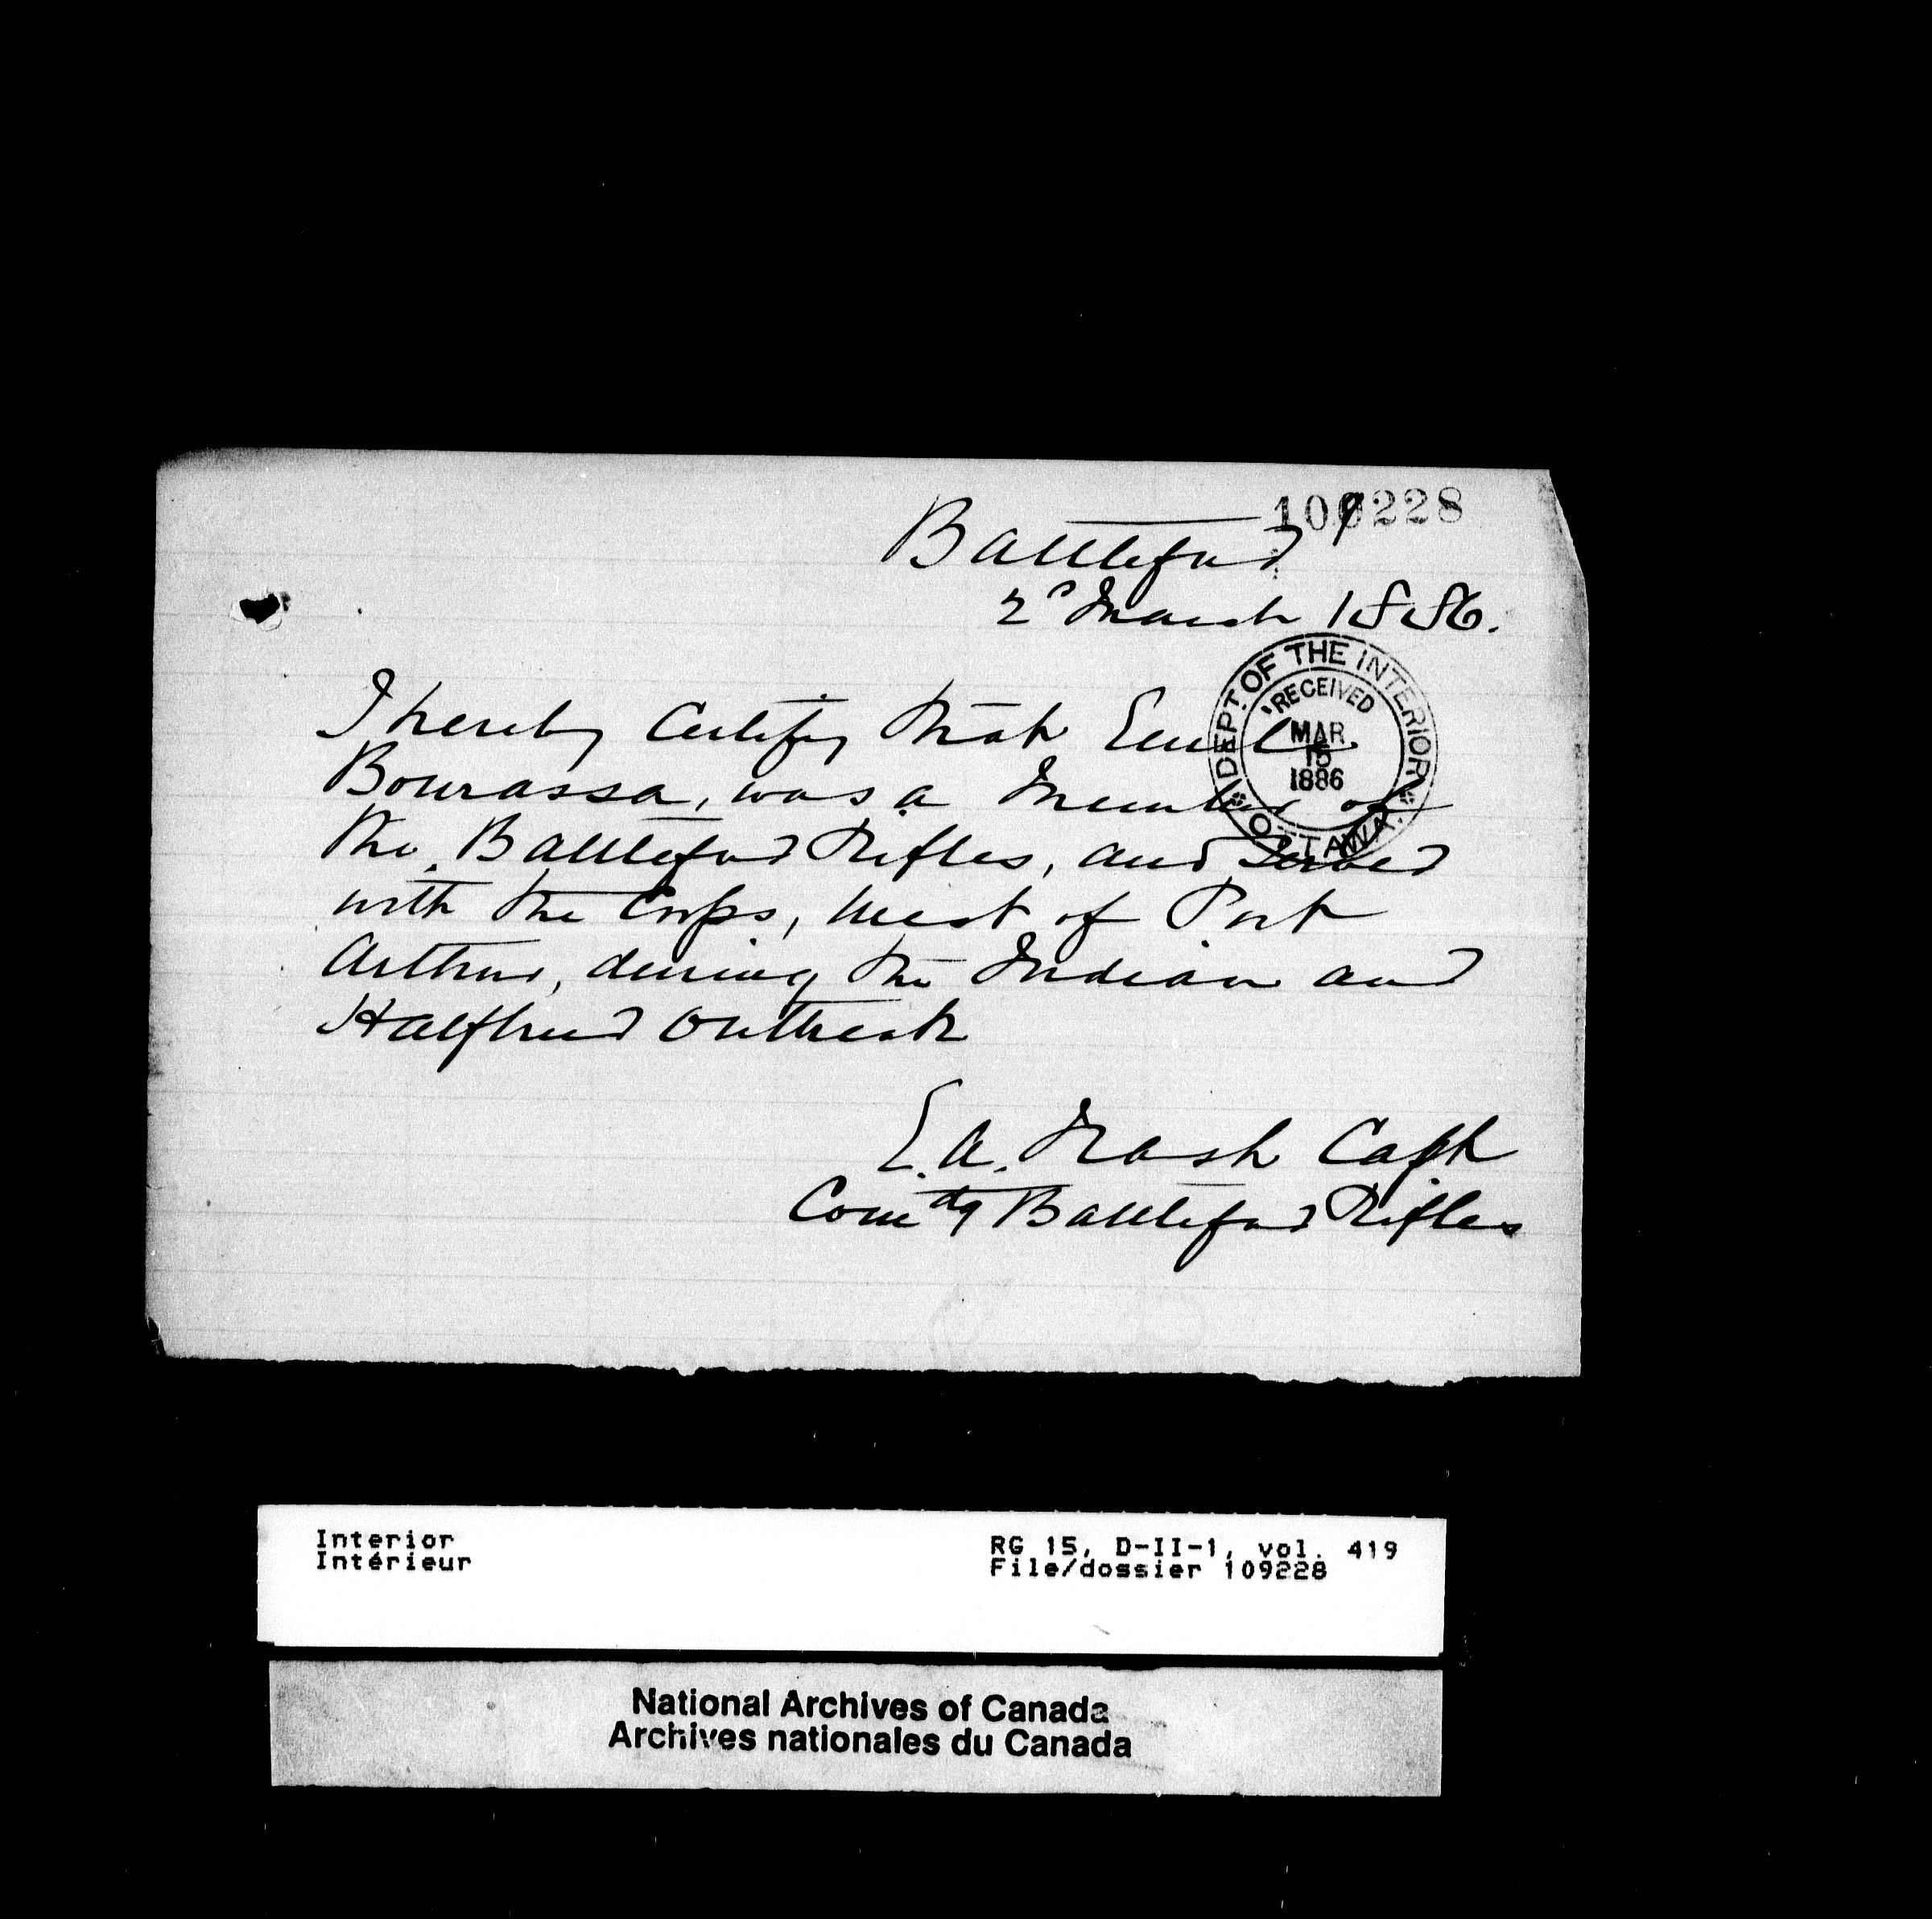 109228
Battleford
2d March 1886.
DEPT. OF THE INTERIOR
RECEIVED
MAR
15
1886
OTTAWA.
I hereby Certify that Emile
Bourassa, was a Member of
the, Battleford Rifles, and Served
with the Corps, West of Port
Arthur, during the Indian and
Halfbreed Outbreak
E. A. Nash Capt
Comdg Battleford Rifles
Interior
Intérieur
RG 15, D-II-1, vol. 419
File/dossier 109228
National Archives of Canada
Archives nationales du Canada